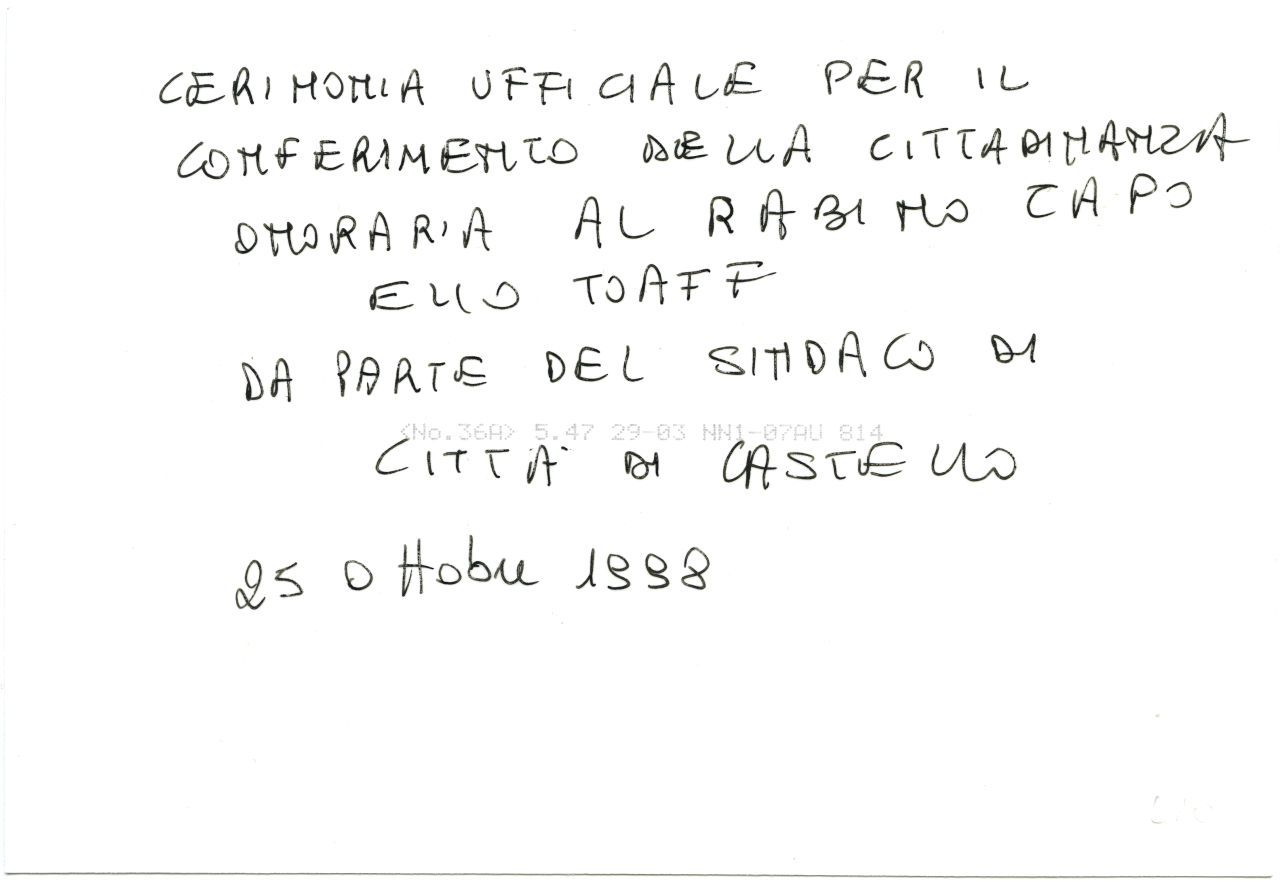 CERIMONIA UFFICIALE PER IL
CONFERIMENTO DELLA CITTADINANZA
ONORARIA AL RABINO CAPO
ELIO TOAFF
DA PARTE DEL SINDACO DI
<No.36A> 5.47 29-03 NN1-07AU 814
CITTÀ DI CASTELLO
25 Ottobre 1998